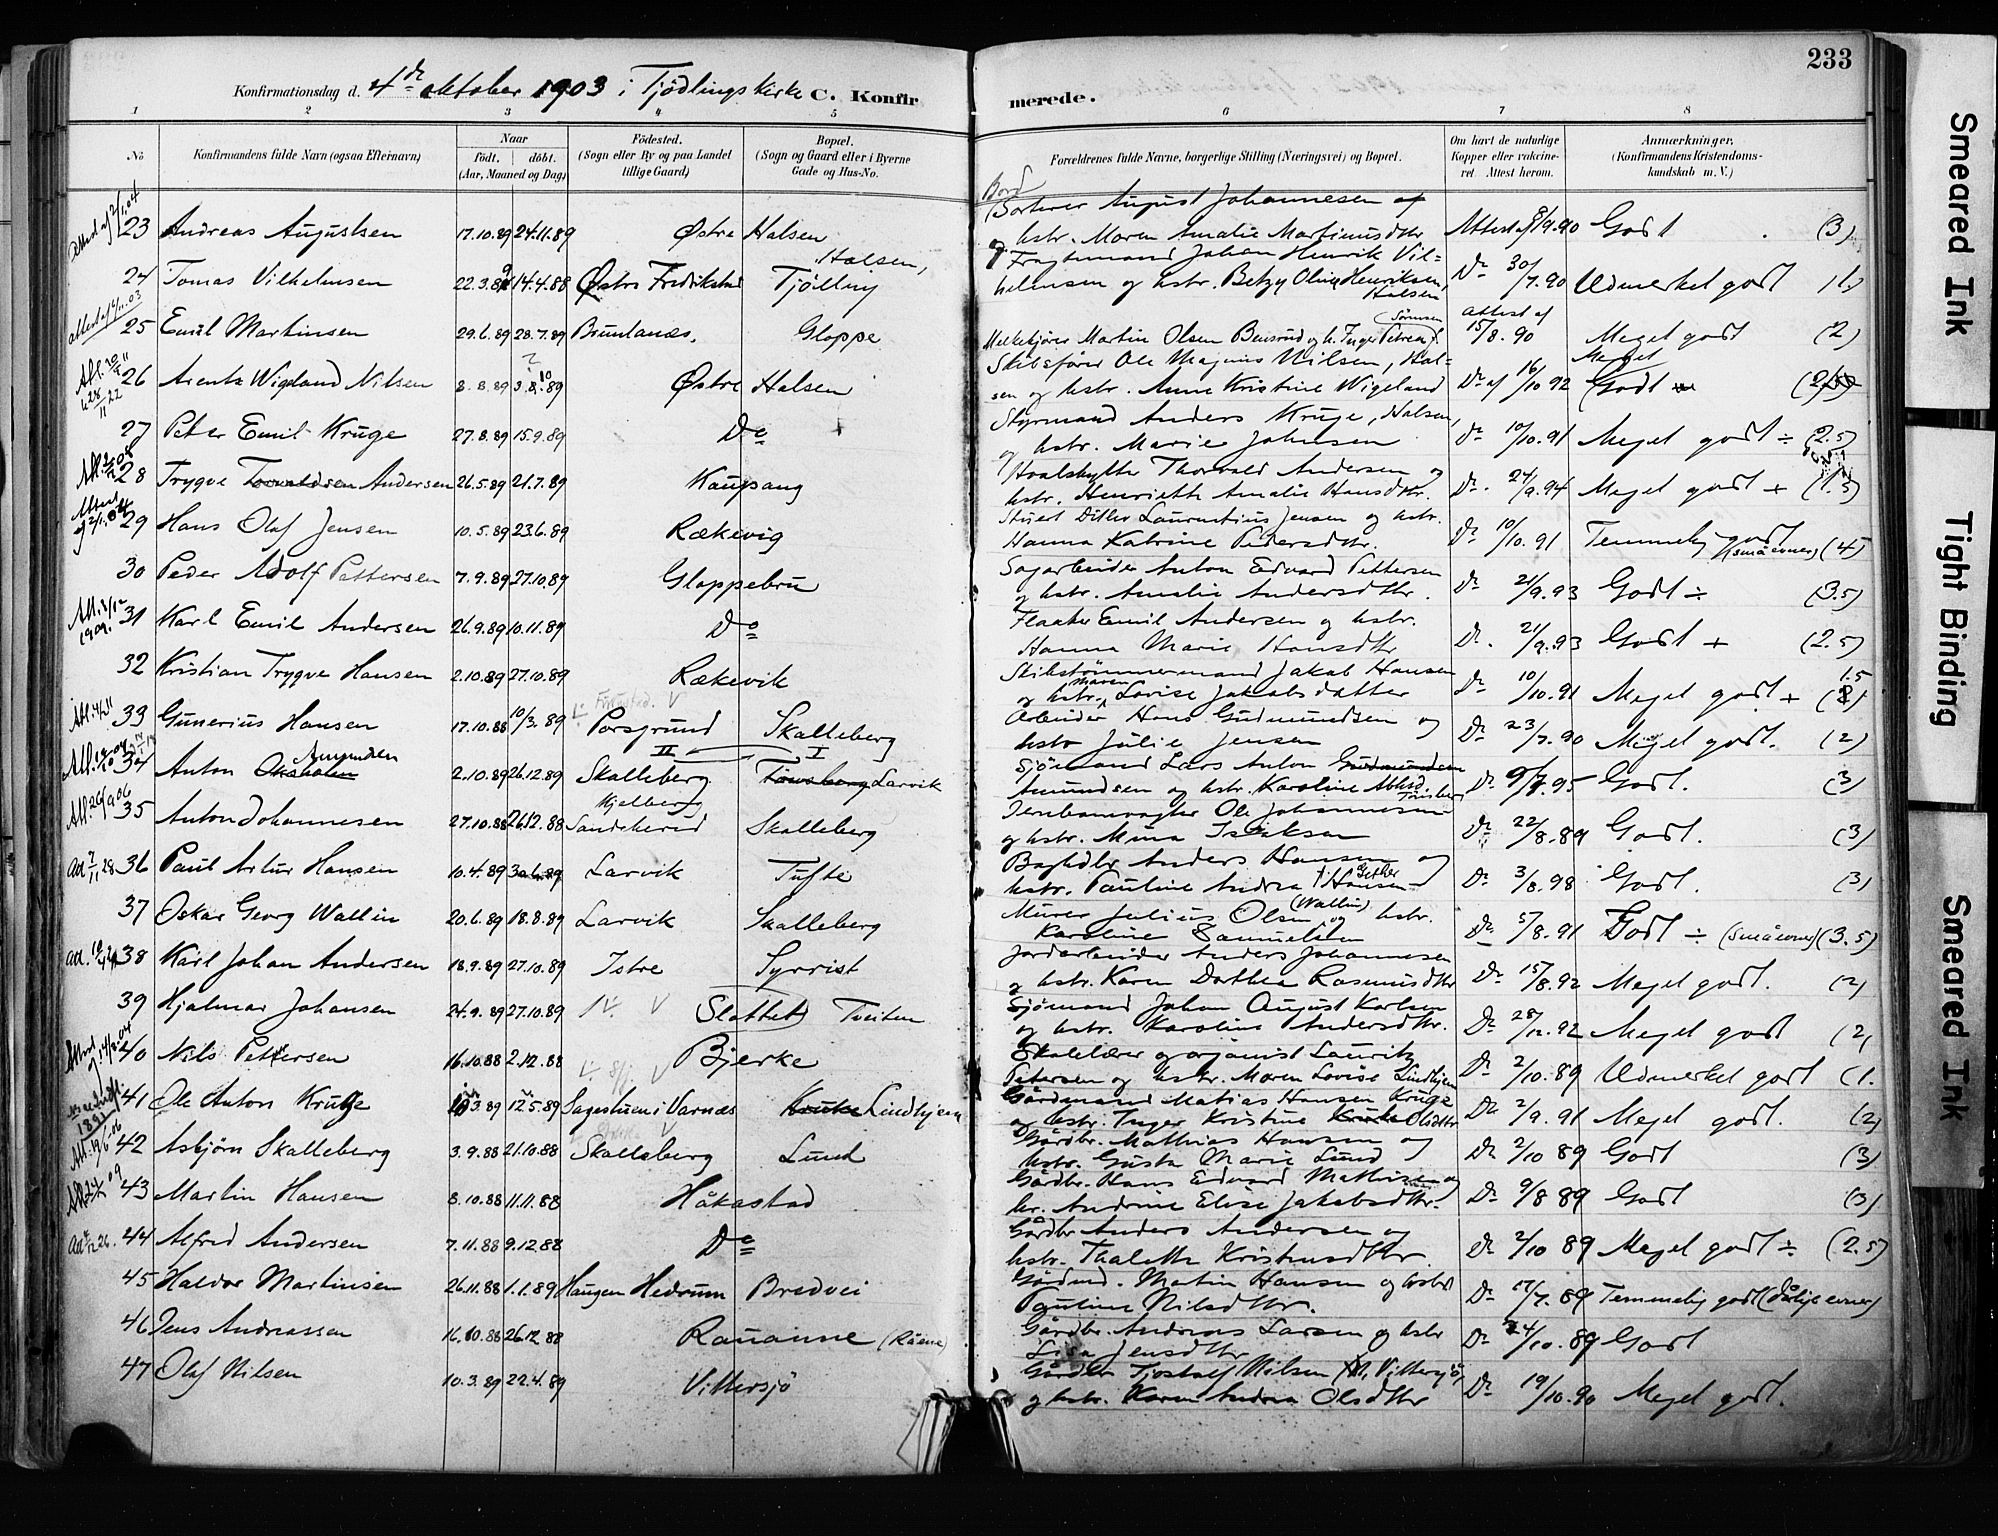 233
Konfirmationsdag d. 4de oktober 1903 i Tjödlings kirke C. Konfirmerede.
1 2 3 4 5 6 7 8
No
Konfirmandens fulde Navn (ogsaa Efternavn)
Naar
födt. döbt.
(Aar, Maaned og Dag)
Födested.
(Sogn eller By og paa Landet tillige Gaard)
Bopæl.
(Sogn og Gaard eller i Byerne Gade og Hus-No.
Forældrenes fulde Navne, borgerlige Stilling (Næringsvei) og Bopæl.
Om havt de naturlige Kopper eller vaccineret. Attest herom.
Anmærkninger.
(Konfirmandens Kristendomskundskab m. V.)
23 Andreas Augustsen 17.10.89 24.11.89 Østre Halsen August Johannesen af
og hstr. Maren Amalie Martinusdtr Attest af 8/9.90 Godt (3)
24 Tomas Vilhelmsen 22.3.89 14.4.88 Østre Fredrikstad Halsen, Tjölling Fragtemand Johan Henrik Vil-
helmsen og hstr. Betzy Oline Henriksen, Halsen Do 30/7.90 Udmerket godt (1.)
25 Emil Martinsen 29.6.89 28.7.89 Brunlanæs. Gloppe
Melkekjörer Martin Olsen Bensrud og h. Inger Petrea attest af 15/8.90 Meget godt (2)
26 Arentz Wigeland Nilsen 8.8.89 Østre Halsen Skibsförer Ole Magnus Nilsen, Hal-
sen og hstr. Anne Kristine Wigeland Do af 16/10 92 Meget Godt
27 Peter Emil Kruge 27.8.89 15.9.89 Do Styrmand Anders Kruge, Halsen,
og hstr. Marie Johnsen Do 10/10.91 Meget godt ÷ (2.5)
28 Trygve Torvaldsen Andersen 26.5.89 21.7.89 Kaupang Hvalskytte Thorvald Andersen og
hstr. Henriette Amalie Hansdtr. Do. 24/9.94 Meget godt + (1.5)
29 Hans Olaf Jensen 10.5.89 23.6.89 Rækevig Stuert Ditlev Laurentius Jensen og hstr.
Hanna Katrine Pedersdtr. Do 10/10.91 Temmelig godt (små evner) (4)
30 Peder Adolf Pettersen 7.9.89 27.10.89 Gloppebru Sagarbeider Anton Edvard Pettersen
og hstr. Amalie Andersdtr. Do 21/9.93 Godt ÷ (3.5)
31 Karl Emil Andersen 26.9.89 10.11.89 Do Flaater Emil Andersen og hstr.
Hanna Marie Hansdtr Do. 21/9.93 Godt + (2.5)
32 Kristian Trygve Hansen 2.10.89 27.10.89 Rækevik Skibstömmermand Jakob Hansen
og hstr. Maren Lovise Jakobsdatter Do 10/10.91 Meget godt + 1.5
33 Gunerius Hansen 17.10.88 10/3.89 Porsgrund Skalleberg Arbeider Hans Gudmundsen og
hstr Julie Jensen Do 23/7.90 Meget godt. (2)
II I
34 Anton Oksholm Amundsen 2.10.89 26.12.89 Skalleberg Tønsberg Larvik Sjömand Lars Anton Gudmundsen
Amundsen og hstr. Karoline Do 9/7.95 Godt. (3)
35 Anton Johannesen 27.10.88 26.12.88 Kjelberg Sandeherred Skalleberg Jernbanevagter Ole Johannesen
og hstr. Mina Isaksen Do 22/8.89 Godt. (3)
36 Paul Artur Hansen 10.4.89 30.6.89 Larvik Tufte Baghdlr Anders Hansen og
hstr. Pauline Andrea Hansen Do 3/8.98 Godt. (3)
37 Oskar Georg Wallin 20.6.89 18.8.89 Larvik Skalleberg Murer Julius Olsen (Wallin) og hstr.
Karoline Samuelsen Do 5/8.91 Godt ÷ (små evner) (3.5)
38 Karl Johan Andersen 18.9.89 27.10.89 Istre Syrrist Jordarbeider Anders Johannesen
og hstr. Karen Dorthea Rasmusdtr Do 15/8.92 Meget godt. (2)
39 Hjalmar Johansen 24.9.89 27.10.89 Slottet Tveiten Sjömand Johan August Karlsen
og hstr. Karoline Andersdtr. Do 28/12.92 Meget godt (2)
40 Nils Pettersen 16.10.88 2.12.88 Bjerke Skolelærer og organist Lauritz
Petersen og hstr. Maren Lovise Lindhjem Do 2/10.89 Udmerket godt (1.
41 Ole Anton Kruge 12.5.89 Sagestuen i Varnæs Lindhjem Gårdmand Matias Hansen Kruge
og hstr. Inger Kristine Olsdtr Do 2/9.91 Meget godt. (2)
42 Asbjörn Skalleberg 3.9.88 21.10.88 Skalleberg Lund Gårdbr. Mathias Hansen og
hstr. Gusta Marie Lund Do 2/10 89 Godt (3)
43 Martin Hansen 8.10.88 11.11.88 Håkastad Gårdbr. Hans Edvard Mathisen og
hr. Andrine Elise Jakobsdtr. Do 9/8 89 Godt (3)
44 Alfred Andersen 7.11.88 9.12.88 Do Gårdbr Anders Andersen og
hstr. Thalette Kristensdtr Do 2/10 89 Meget godt ÷ (2.5)
45 Haldor Martinsen 26.11.88 1.1.89 Haugen Hedrum Bredvei Gårdmd. Matin Hansen og hstr
Pauline Nilsdtr. Do 17/7.89 Temmelig godt (dårlige evner)
46 Jens Andreassen 16.10.88 26.12.88 Rauanne (Råene) Gårdbr. Andreas Larsen og hstr
Lisa Jensdtr Do 24/10.89 Godt
47 Olaf Nilsen 10.3.89 22.4.89 Vittersjö Gårdbr Tjostolf Nilsen Vittersjö,
og hstr. Karen Andrea Olsdtr Do 19/10.90 Meget godt.
Smeared Ink
Tight Binding
Smeared Ink